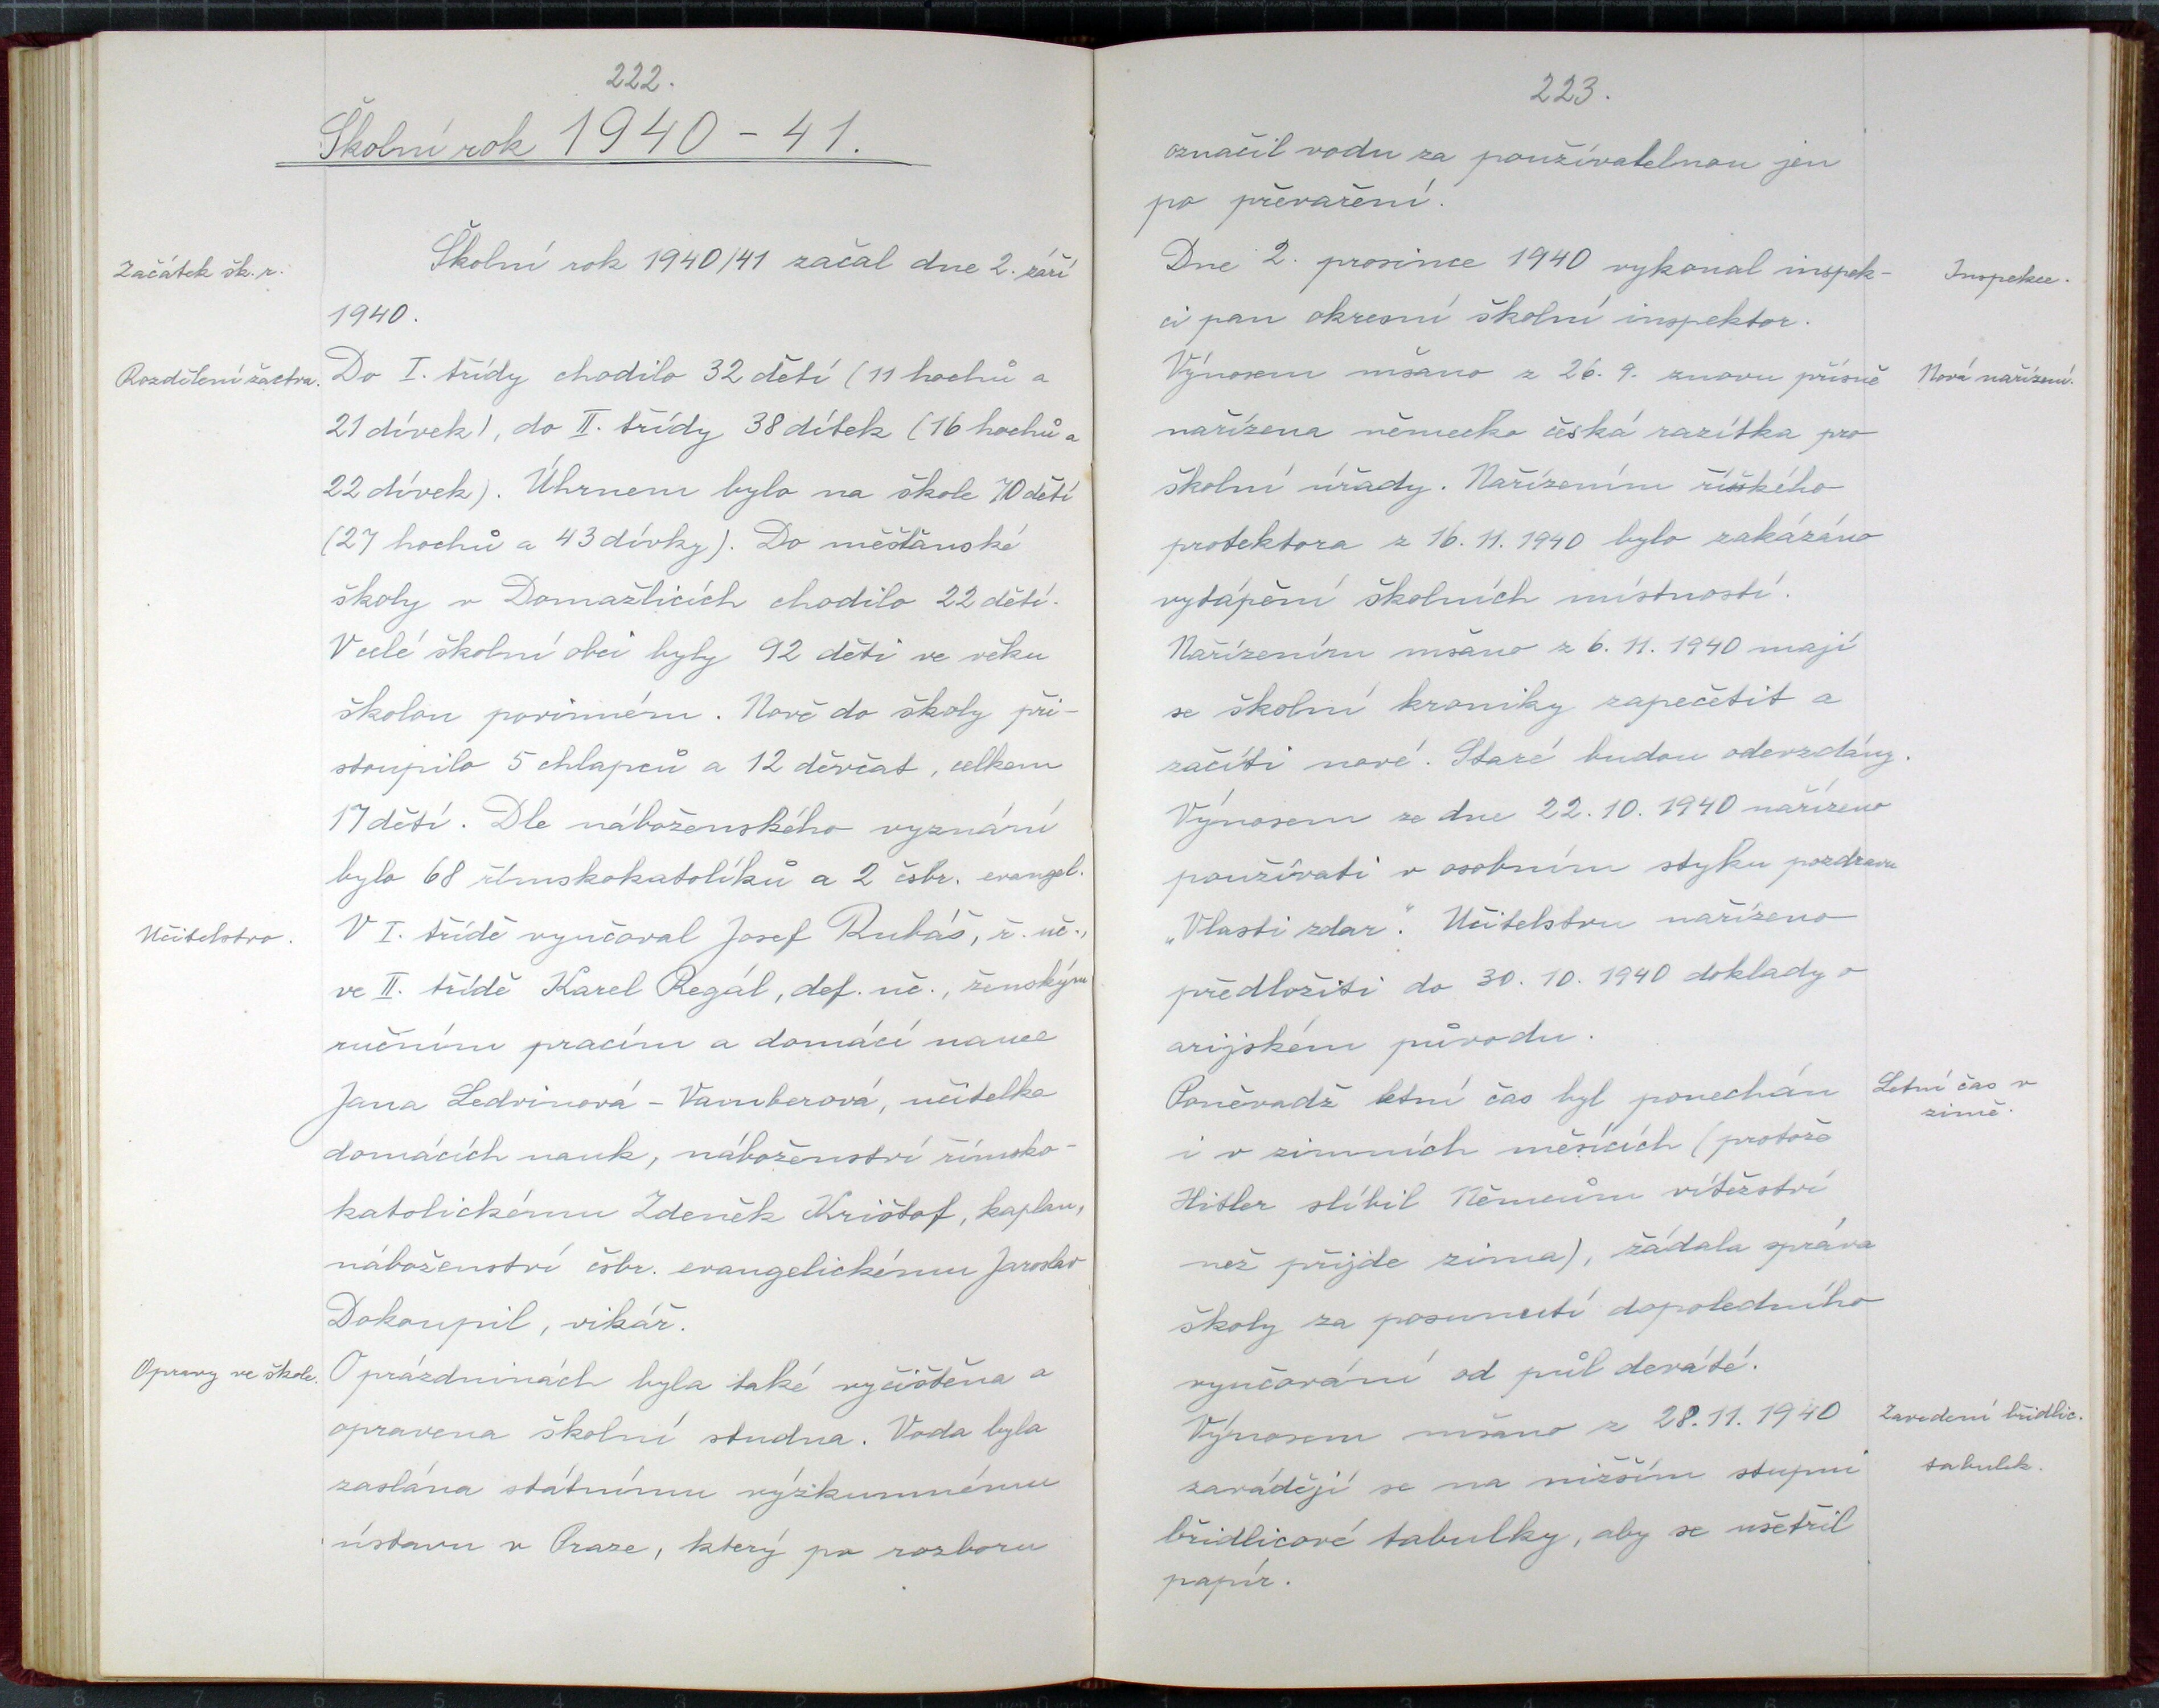 222.
Školní rok 1940-41.
Začátek šk. r.
Školní rok 1940/41 začal dne 2. září
1940.
Rozdělení žactva.
Do I. třídy chodilo 32 dětí (11 hochů a
21 dívek), do II. třídy 38 dítek (16 hochů a
22 dívek). Úhrnem bylo na škole 70 dětí
(27 hochů a 43 dívky). Do měšťanské
školy v Domažlicích chodilo 22 dětí.
V celé školní obci byly 92 děti ve věku
školou povinném. Nově do školy při-
stoupilo 5 chlapců a 12 děvčat, celkem
17 dětí. Dle náboženského vyznání
bylo 68 římskokatolíků a 2 čsbr. evangel.
Učitelstvo.
V I. třídě vyučoval Josef Rubáš, ř. uč.,
ve II. třídě Karel Regál, def. uč., ženským
ručním pracím a domácí nauce
Jana Ledvinová - Vamberová, učitelka
domácích nauk, náboženství římsko-
katolickému Zdeněk Krištof, kaplan,
náboženství čsbr. evangelickému Jaroslav
Dokoupil, vikář.
Opravy ve škole.
O prázdninách byla také vyčištěna a
opravena školní studna. Voda byla
zaslána státnímu výzkumnému
ústavu v Praze, který po rozboru
223.
označil vodu za použivatelnou jen
po převaření.
Dne 2. prosince 1940 vykonal inspek-
ci pan okresní školní inspektor.
Inspekce.
Výnosem mšano z 26. 9. znovu přísně
Nová nařízení.
nařízena německo česká razítka pro
školní úřady. Nařízením říšského
protektora z 16. 11. 1940 bylo zakázáno
vytápění školních místností.
Nařízením mšano z 6. 11. 1940 mají
se školní kroniky zapečetit a
začíti nové. Staré budou odevzdány.
Výnosem ze dne 22. 10. 1940 nařízeno
používati v osobním styku pozdravu
„Vlasti zdar“. Učitelstvu nařízeno
předložiti do 30. 10. 1940 doklady o
arijském původu.
Poněvadž letní čas byl ponechán
Letní čas v
zimě.
i v zimních měsících (protože
Hitler slíbil Němcům vítězství
než přijde zima), žádala správa
školy za posunutí dopoledního
vyučování od půl deváté.
Výnosem mšano z 28. 11. 1940
Zavedení břidlic.
tabulek.
zavádějí se na nižším stupni
břidlicové tabulky, aby se ušetřil
papír.